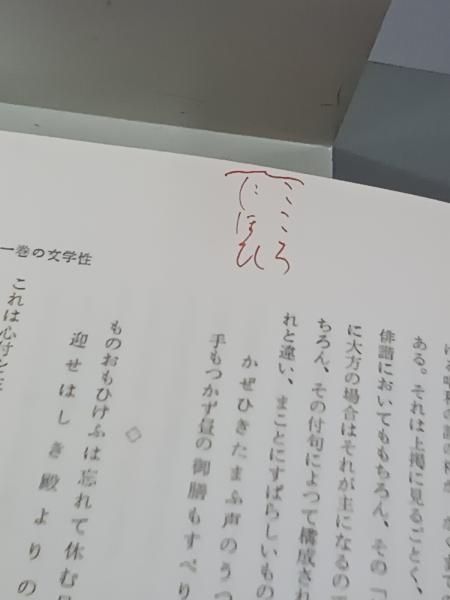 こころ
にほひ
一巻の文学性
ある。それは上掲に見るごとく、
俳諧においてももちろん、その「
に大方の場合はそれが主になるの
ちろん、その付句によつて構成され
れと違い、まことにすばらしいもの
かぜひきたまふ声のうつ
手もつかず昼の御膳もすべり
◇
ものおもひけふは忘れて休む
迎せはしき殿よりの
これは心付